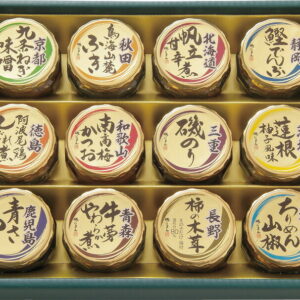 京都
九条ねぎ
味噌
秋田
鳥海山麓
ふき
北海道
帆立
甘辛煮
静岡
鰹
でんぶ
徳島
阿波尾鶏
和歌山
南高梅
かつお
三重
磯のり
蓮根
柚子風味
鹿児島
青
青森
牛蒡
やわらか煮
長野
柿の木茸
ちりめん
山椒